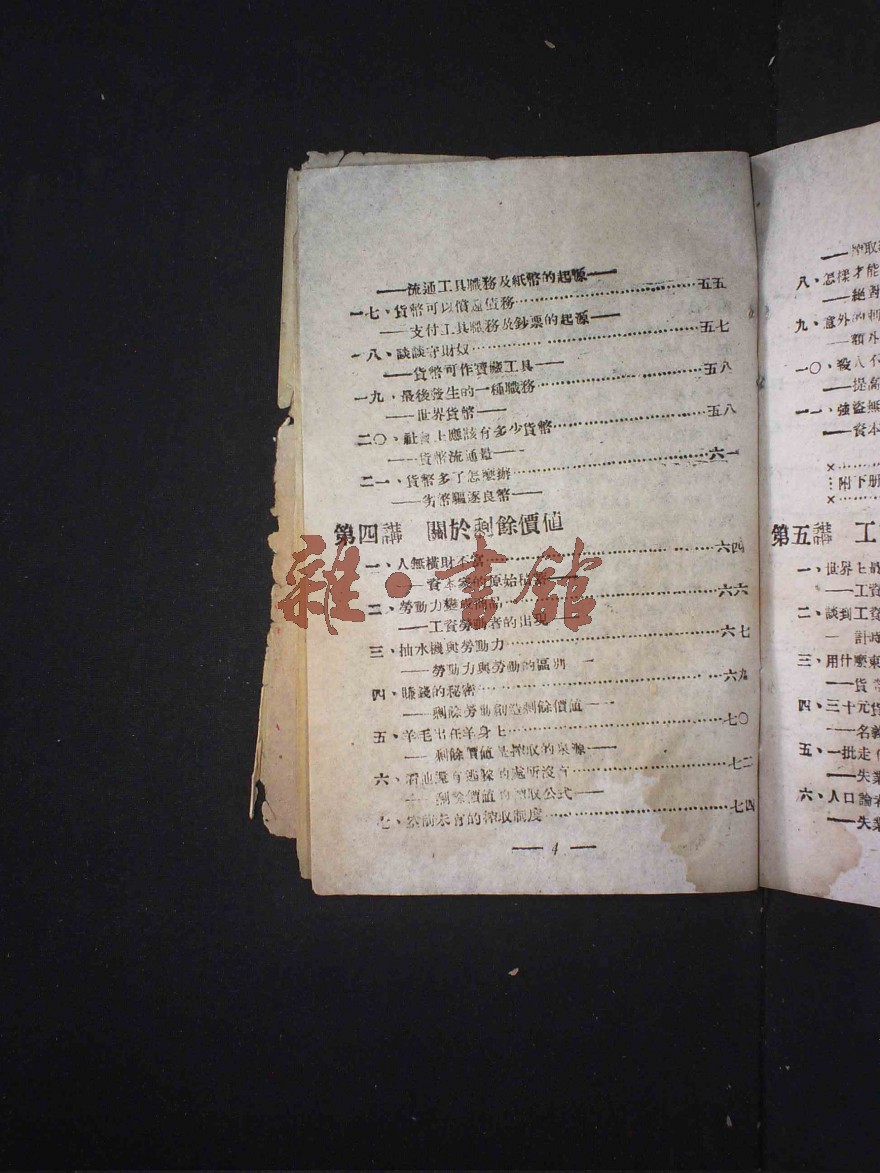 ——流通工具職務及紙幣的起源——
一七、貨幣可以償還債務……五五
——支付工具職務及鈔票的起源——
一八、談談守財奴……五七
——貨幣可作寶藏工具——
一九、最後發生的一種職務……五八
——世界貨幣——
二〇、社會上應該有多少貨幣……五八
——貨幣流通量——
二一、貨幣多了怎麼辦……六一
——劣幣驅逐良幣——
第四講 關於剩餘價值
一、人無橫財不富……六四
——資本家的原始積蓄——
二、勞動力變成商品……六六
——工資勞動者的出現——
三、抽水機與勞動力……六七
——勞動力與勞動的區別——
四、賺錢的秘密……六九
——剩餘勞動創造剩餘價值——
五、羊毛出在羊身上……七〇
——剩餘價值是搾取的泉源——
六、……七二
——剩餘價值的搾取公式——
七、空前未有的搾取制度……七四
—— 4 ——
雜·書館
八、怎樣才能
——絕對
九、意外的
——額外
一〇、殺人不
——提高
一一、強盜無
——資本
×……
附下册
×……
第五講 工
一、世界上最
——工資
二、談到工資
計時
三、用什麼東
——貨幣
四、三十元貨
——名義
五、一批走
——失業
六、人口論者
——失業